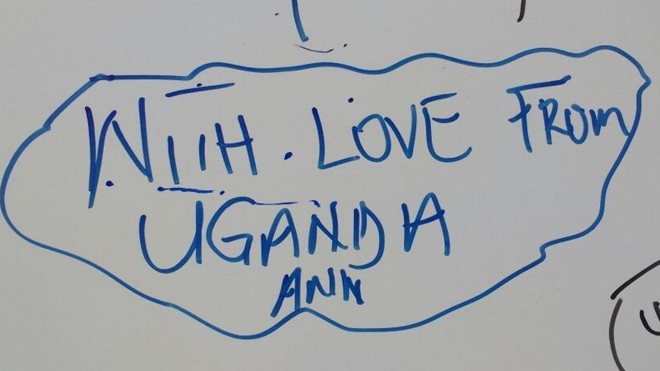 WITH. LOVE FROM
UGANDA
ANN